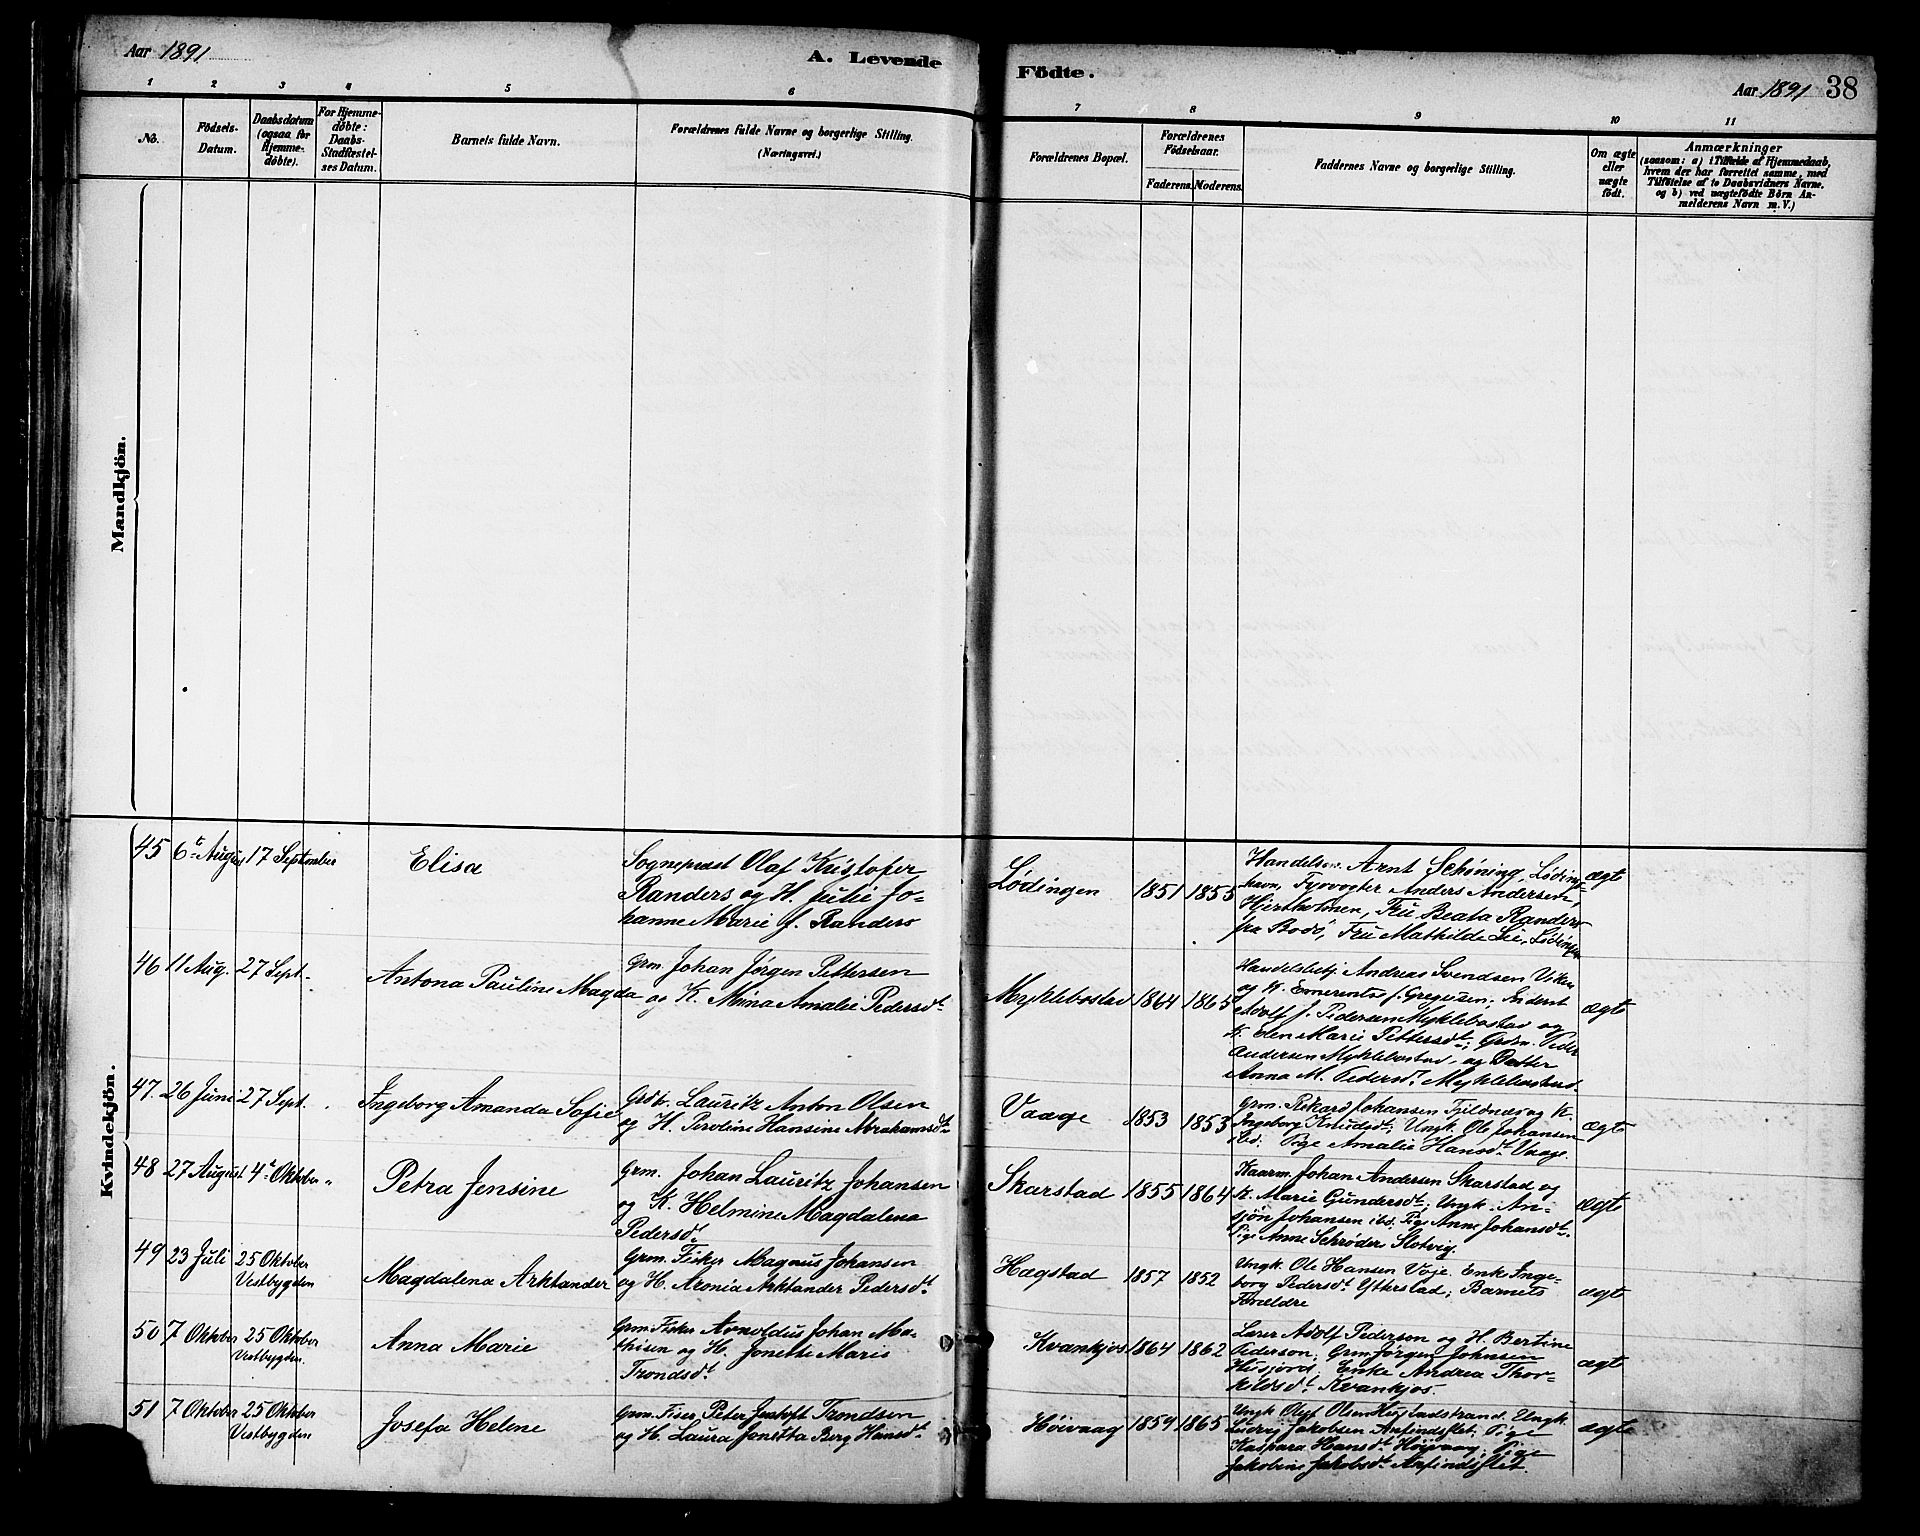 Aar 1891.
A. Levende
Födte.
Aar 1891
38
1 2 3 4 5 6 7 8 9 10 11
No.
Födsels-
Datum.
Daabsdatum
(ogsaa for
Hjemme-
døbte).
For Hjemme-
døbte:
Daabs-
Stadfæstel-
ses Datum.
Barnets fulde Navn.
Forældrenes fulde Navne og borgerlige Stilling.
(Næringsvei.)
Forældrenes Bopæl.
Forældrenes
Födselsaar.
Faderens. Moderens.
Faddernes Navne og borgerlige Stilling.
Om ægte
eller
uægte
födt.
Anmærkninger
(saasom: a) i Tilfælde af Hjemmedaab,
hvem der har forrettet samme, med
Tilföielse af to Daabsvidners Navne.
og b) ved uægtefödte Börn An-
melderens Navn m. V.)
Mandkjön.
Kvindekjön.
45 6te August 17 September
Elisa
Sognepræst Olaf Kristofer
Randers og H. Julie Jo-
hanne Marie f. Randers
Lödingen 1851 1855
Handelsm. Arnt Schöning, Löding-
havn, Fyrvogter Anders Andersen,
Hjertholmen, Fru Beata Randers
fra Bodö, Fru Mathilde Lie, Lödingen
ægte
46 11 Aug. 27 Sept.
Antona Pauline Magda
Grm. Johan Jörgen Pettersen
og K. Mina Amalie Pedersdt.
Myklebostad 1864 1865
Handelsbetj. Andreas Svendsen Viken
og K. Emerentse f. Gregusen;
Adolf J. Pedersen Myklebostad og
K. Elen Marie Pettersdt; Grdm. Peder
Andersen Myklebostad, og Datter
Anna M. Pedersdt. Myklebostad.
ægte
47. 26 Juni 27 Sept.
Ingeborg Amanda Sofie
Grdbr. Lauritz Anton Olsen
og H. Peroline Hansine Abrahamsdt.
Vaage 1853 1853
Grm. Rikard Johansen Fjeldnæs og K.
Ingeborg Knudsdt; Ungk. Ole Johansen
ibd. Pige Amalie Hansdt. Vaage.
ægte
48 27 August 4de Oktober "
Petra Jensine
Grm. Johan Lauritz Johansen
og K. Helmine Magdalena
Pedersdt.
Skarstad 1855 1864
Kaarm. Johan Andersen Skarstad og
K. Marie Gundersdt; Ungk. An-
sjön Johansen ibd; Pige Anne Johansdt.
Pige Anne Schröder Slotvig.
ægte
49 23 Juli 25 Oktober
Vestbygden
Magdalena Arktander
Grm. Fisker Magnus Johansen
og H. Aronia Arktander Pedersdt.
Hagstad 1857 1852
Ungk. Ole Hansen Voje. Enke Inge-
borg Pedersdt Ytterstad; Barnets
Forældre
ægte
50 7 Oktober 25 Oktober
Vestbygden.
Anna Marie
Grm. Fisker Arnoldus Johan Ma-
thisen og H. Jonette Marie
Trondsdt.
Kvankjos 1864 1862
Lærer Adolf Pederson og H. Bertine
Pederson; Grm. Jörgen Johnsen
Husjord; Enke Andrea Thor-
kildsdt. Kvankjos.
ægte
51 7 Oktober 25 Oktober
Vestbygden
Josefa Helene
Grm. Fiser Peter Jentoft Trondsen
og H. Laura Jonetta Berg Hansdt.
Höivaag 1859 1865
Ungk Oluf Olsen Hustadstrand. Ungk.
Ludvig Jakobsen Anfindslet; Pige
Kaspara Hansdt. Höivaag; Pige
Jakobine Jakobsdt. Anfindslet.
ægte